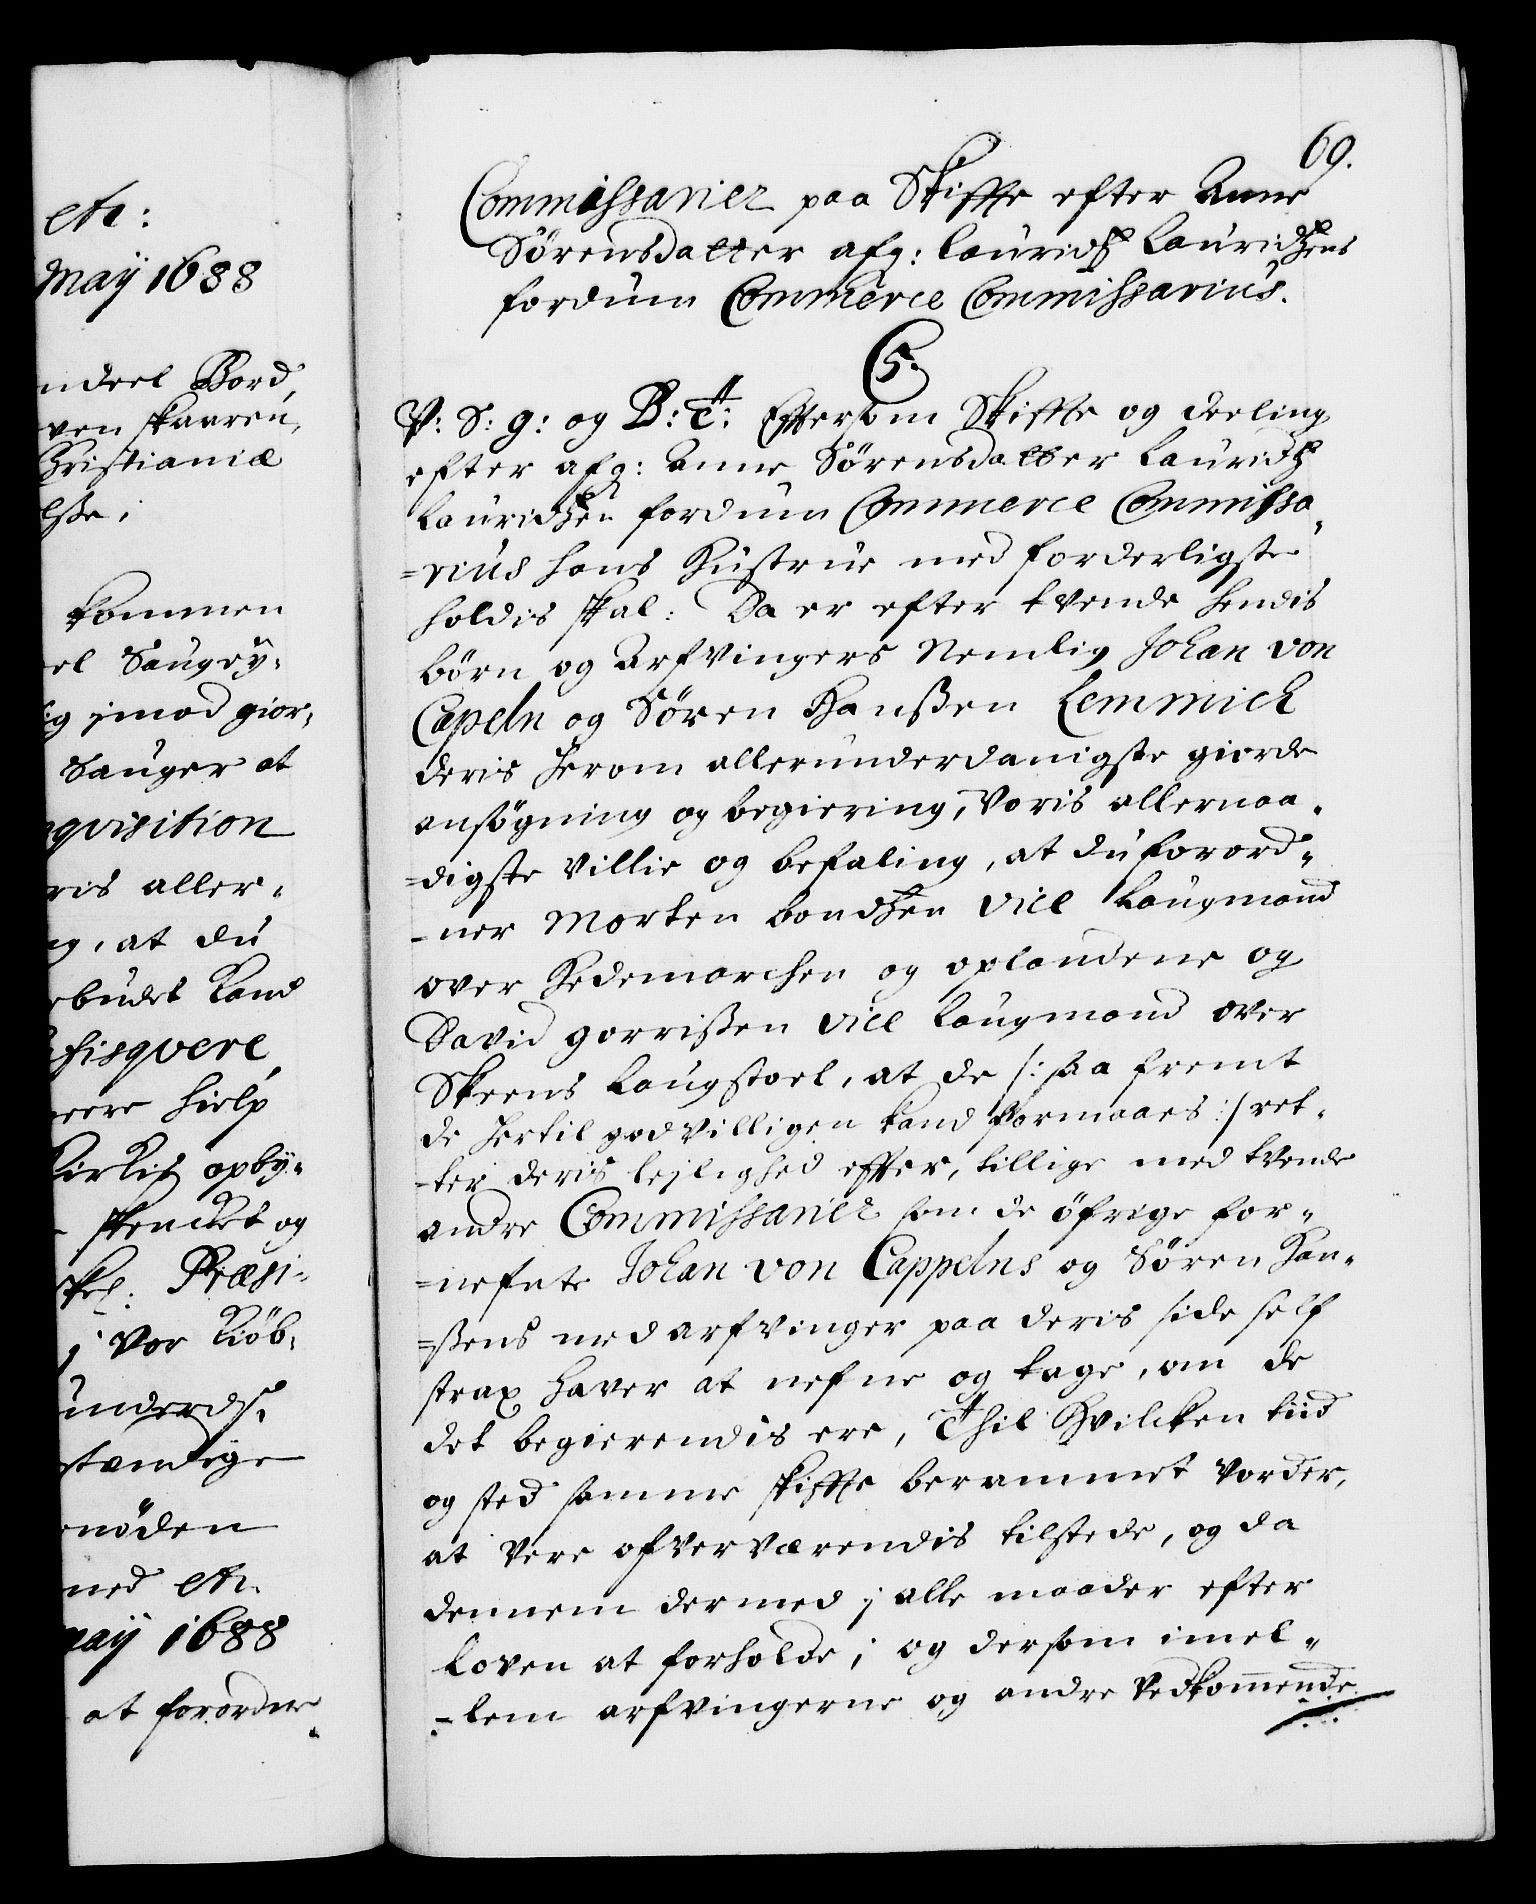 etc:
May 1688
ndeel Bord,
ven skaaren,
Christianiæ
lsse,
kommen
el Saugey-
g imod gior-
Sauger at
qvisition
ris aller-
ng, at du
rbudet Land
fisqvere
eere hielp
Kirkis opby-
skencket og
skel: Præsi-
i vor Kiöb-
underds.
stændige
nöden
med etc.
May 1688
at forordne
69.
Commissarier paa Skiffte efter Anne
Sörensdatter afg: Lauridz Lauridzens
fordum Commerce Commissarius.
C5.
V: S: g: og B: T: Eftersom Skiffte og deeling
efter afg: Anne Sörensdatter Lauridz
Lauridzen fordum Commerce Commissa-
=rius hans Hustrue med forderligste
holdis skal: Da er efter tvende hendis
börn og Arfvingers Nemlig Johan von
Capeln og Sören Hanßen Lemmick
deris herom allerunderdanigste giorde
ansögning og begiering, Voris allernaa-
=digste Villie og befaling, at du forord-
=ner Morten bondzen Vice Laugmand
over Hedemarchen og oplandene og
David gorrißen Vice Laugmand over
Skeens Laugstoel, at de /: saa fremt
de hertil godvilligen kand formaaes :/ ret-
=ter deris lejlighed effter, tillige med tvende
andre Commissarier som de öfrige for-
=nefnte Johan von Cappelns og Sören Han-
=ßens medarfvinger paa deris side self
strax haver at nefne og tage, om de
det begierendis ere, Thil hvilcken tiid
og sted samme skiffte berammet vorder,
at vere ofververærendis tilstede, og da
dennem dermed i alle maader efter
Loven at forholde; og dersom imel-
=lem arfvingerne og andre Vedkommende